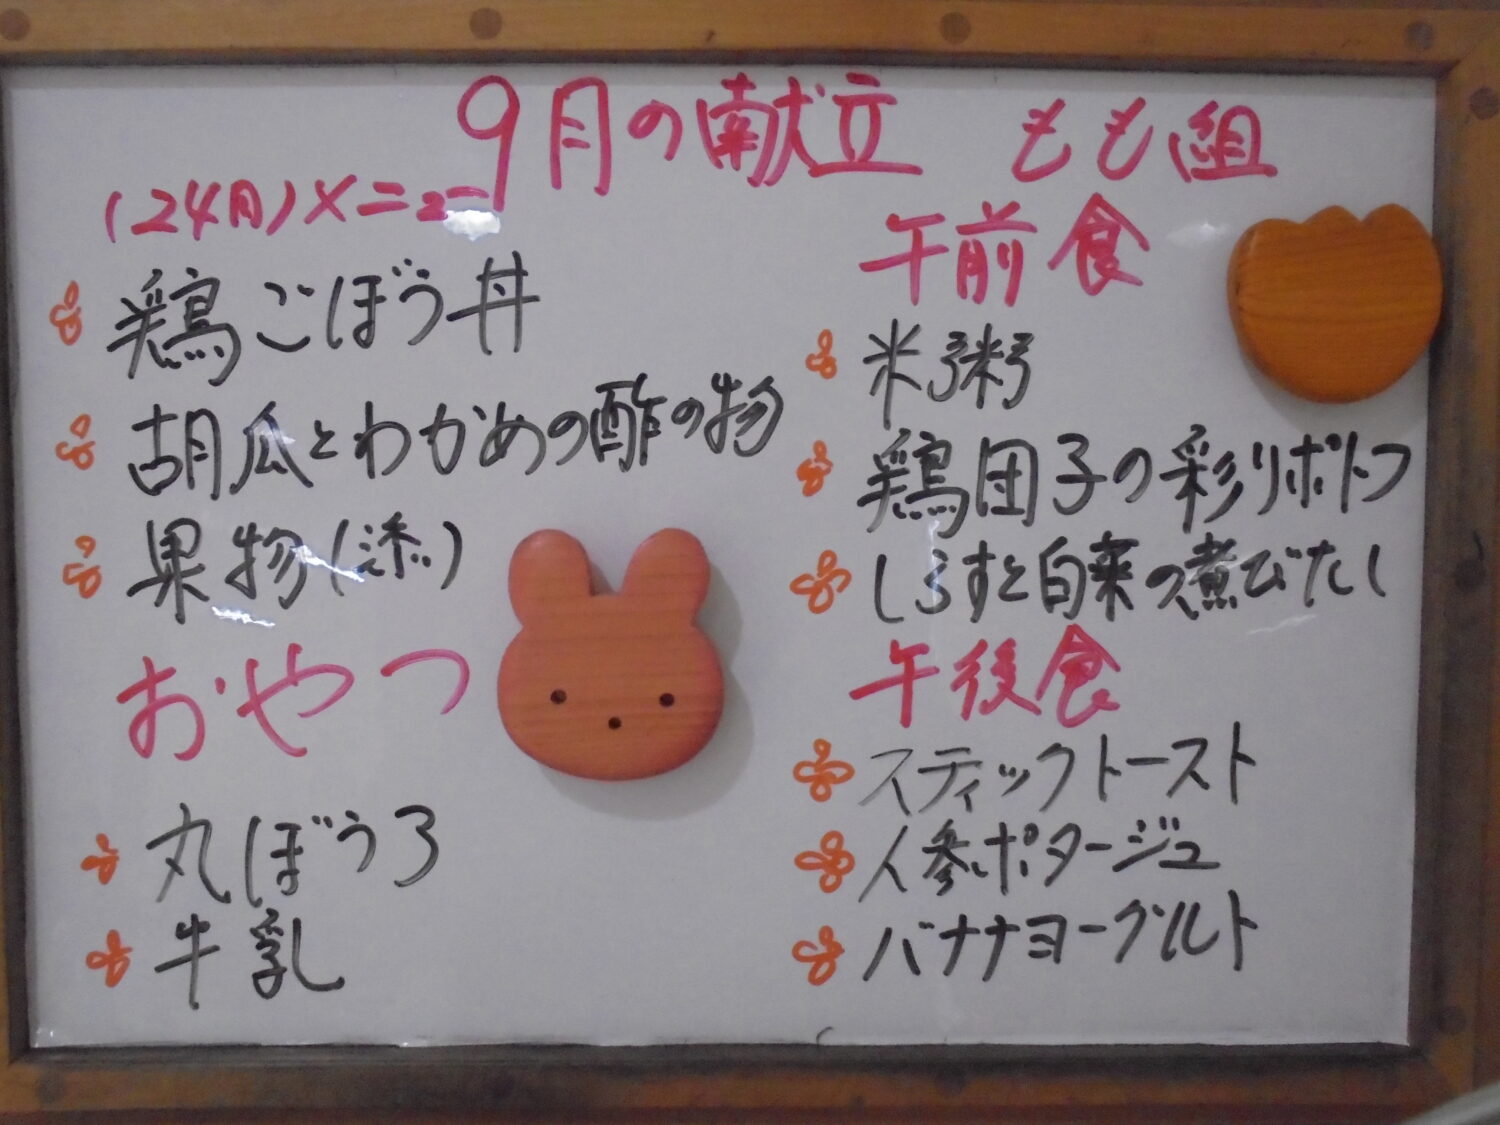 9月の献立 もも組
(24月)メニュー
鶏ごぼう丼
胡瓜とわかめの酢の物
果物(添)
おやつ
丸ぼうろ
牛乳
午前食
米粥
鶏団子の彩りポトフ
しらすと白菜の煮びたし
午後食
スティックトースト
人参ポタージュ
バナナヨーグルト